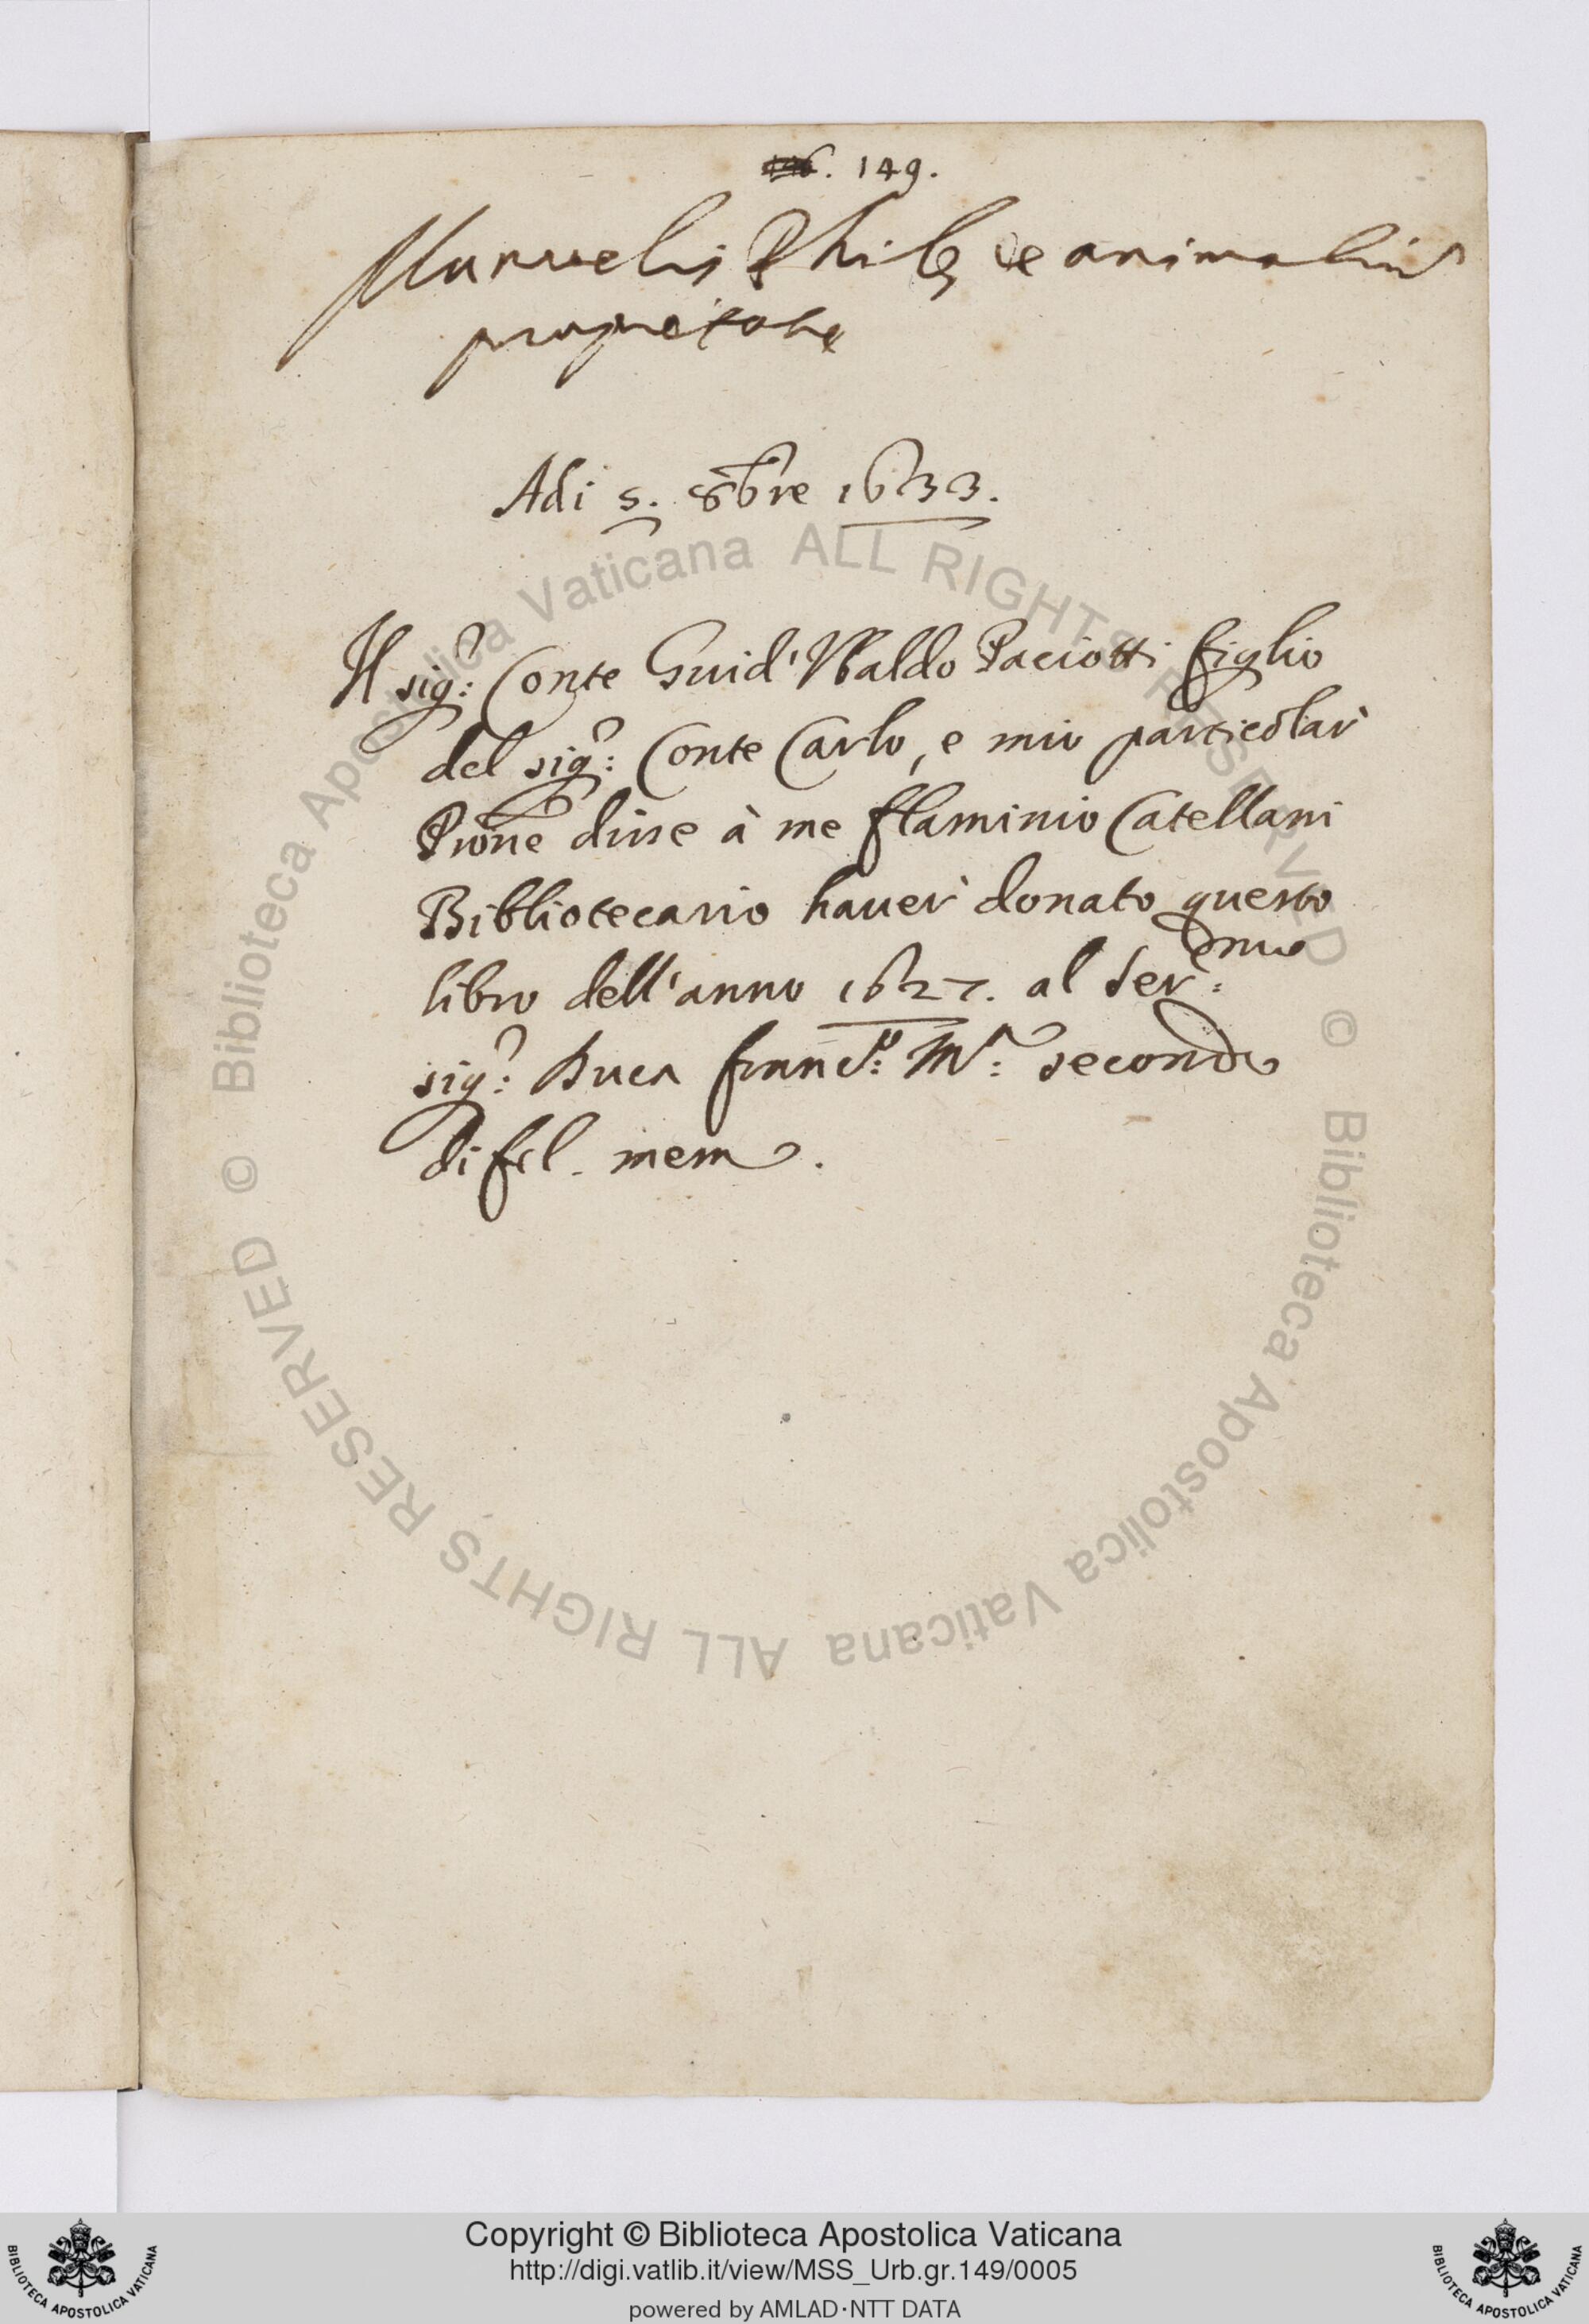 149.
Manuelis Phile de animalium
proprietate
Adi 5. 8bre 1633.
Il sig.r Conte Guid'Vbaldo Paciotti figlio
del sig.r Conte Carlo, e mio particolar
Prone disse à me flaminio Catellani
Bibliotecario hauer donato questo
libro dell'anno 1627. al Ser.mo
sig.r Duca franc.o M.a secondo
di fel. mem.
© Biblioteca Apostolica Vaticana ALL RIGHTS RESERVED © Biblioteca Apostolica Vaticana ALL RIGHTS RESERVED
Copyright © Biblioteca Apostolica Vaticana
http://digi.vatlib.it/view/MSS_Urb.gr.149/0005
powered by AMLAD·NTT DATA
BIBLIOTECA APOSTOLICA VATICANA
BIBLIOTECA APOSTOLICA VATICANA